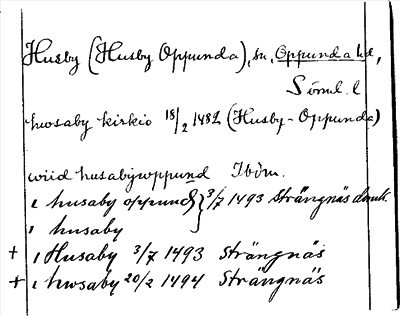 Husby (Husby Oppunda), sn, Oppunda hd,
Söml. l
hwsaby kirkio 18/2 1482 (Husby-Oppunda)
wiid husabywppund Ibdm.
i husaby oppund } 3/7 1493 Strängnäs domk.
i husaby
+ i Husaby 3/7 1493 Strängnäs
+ i hwsaby 20/2 1494 Strängnäs